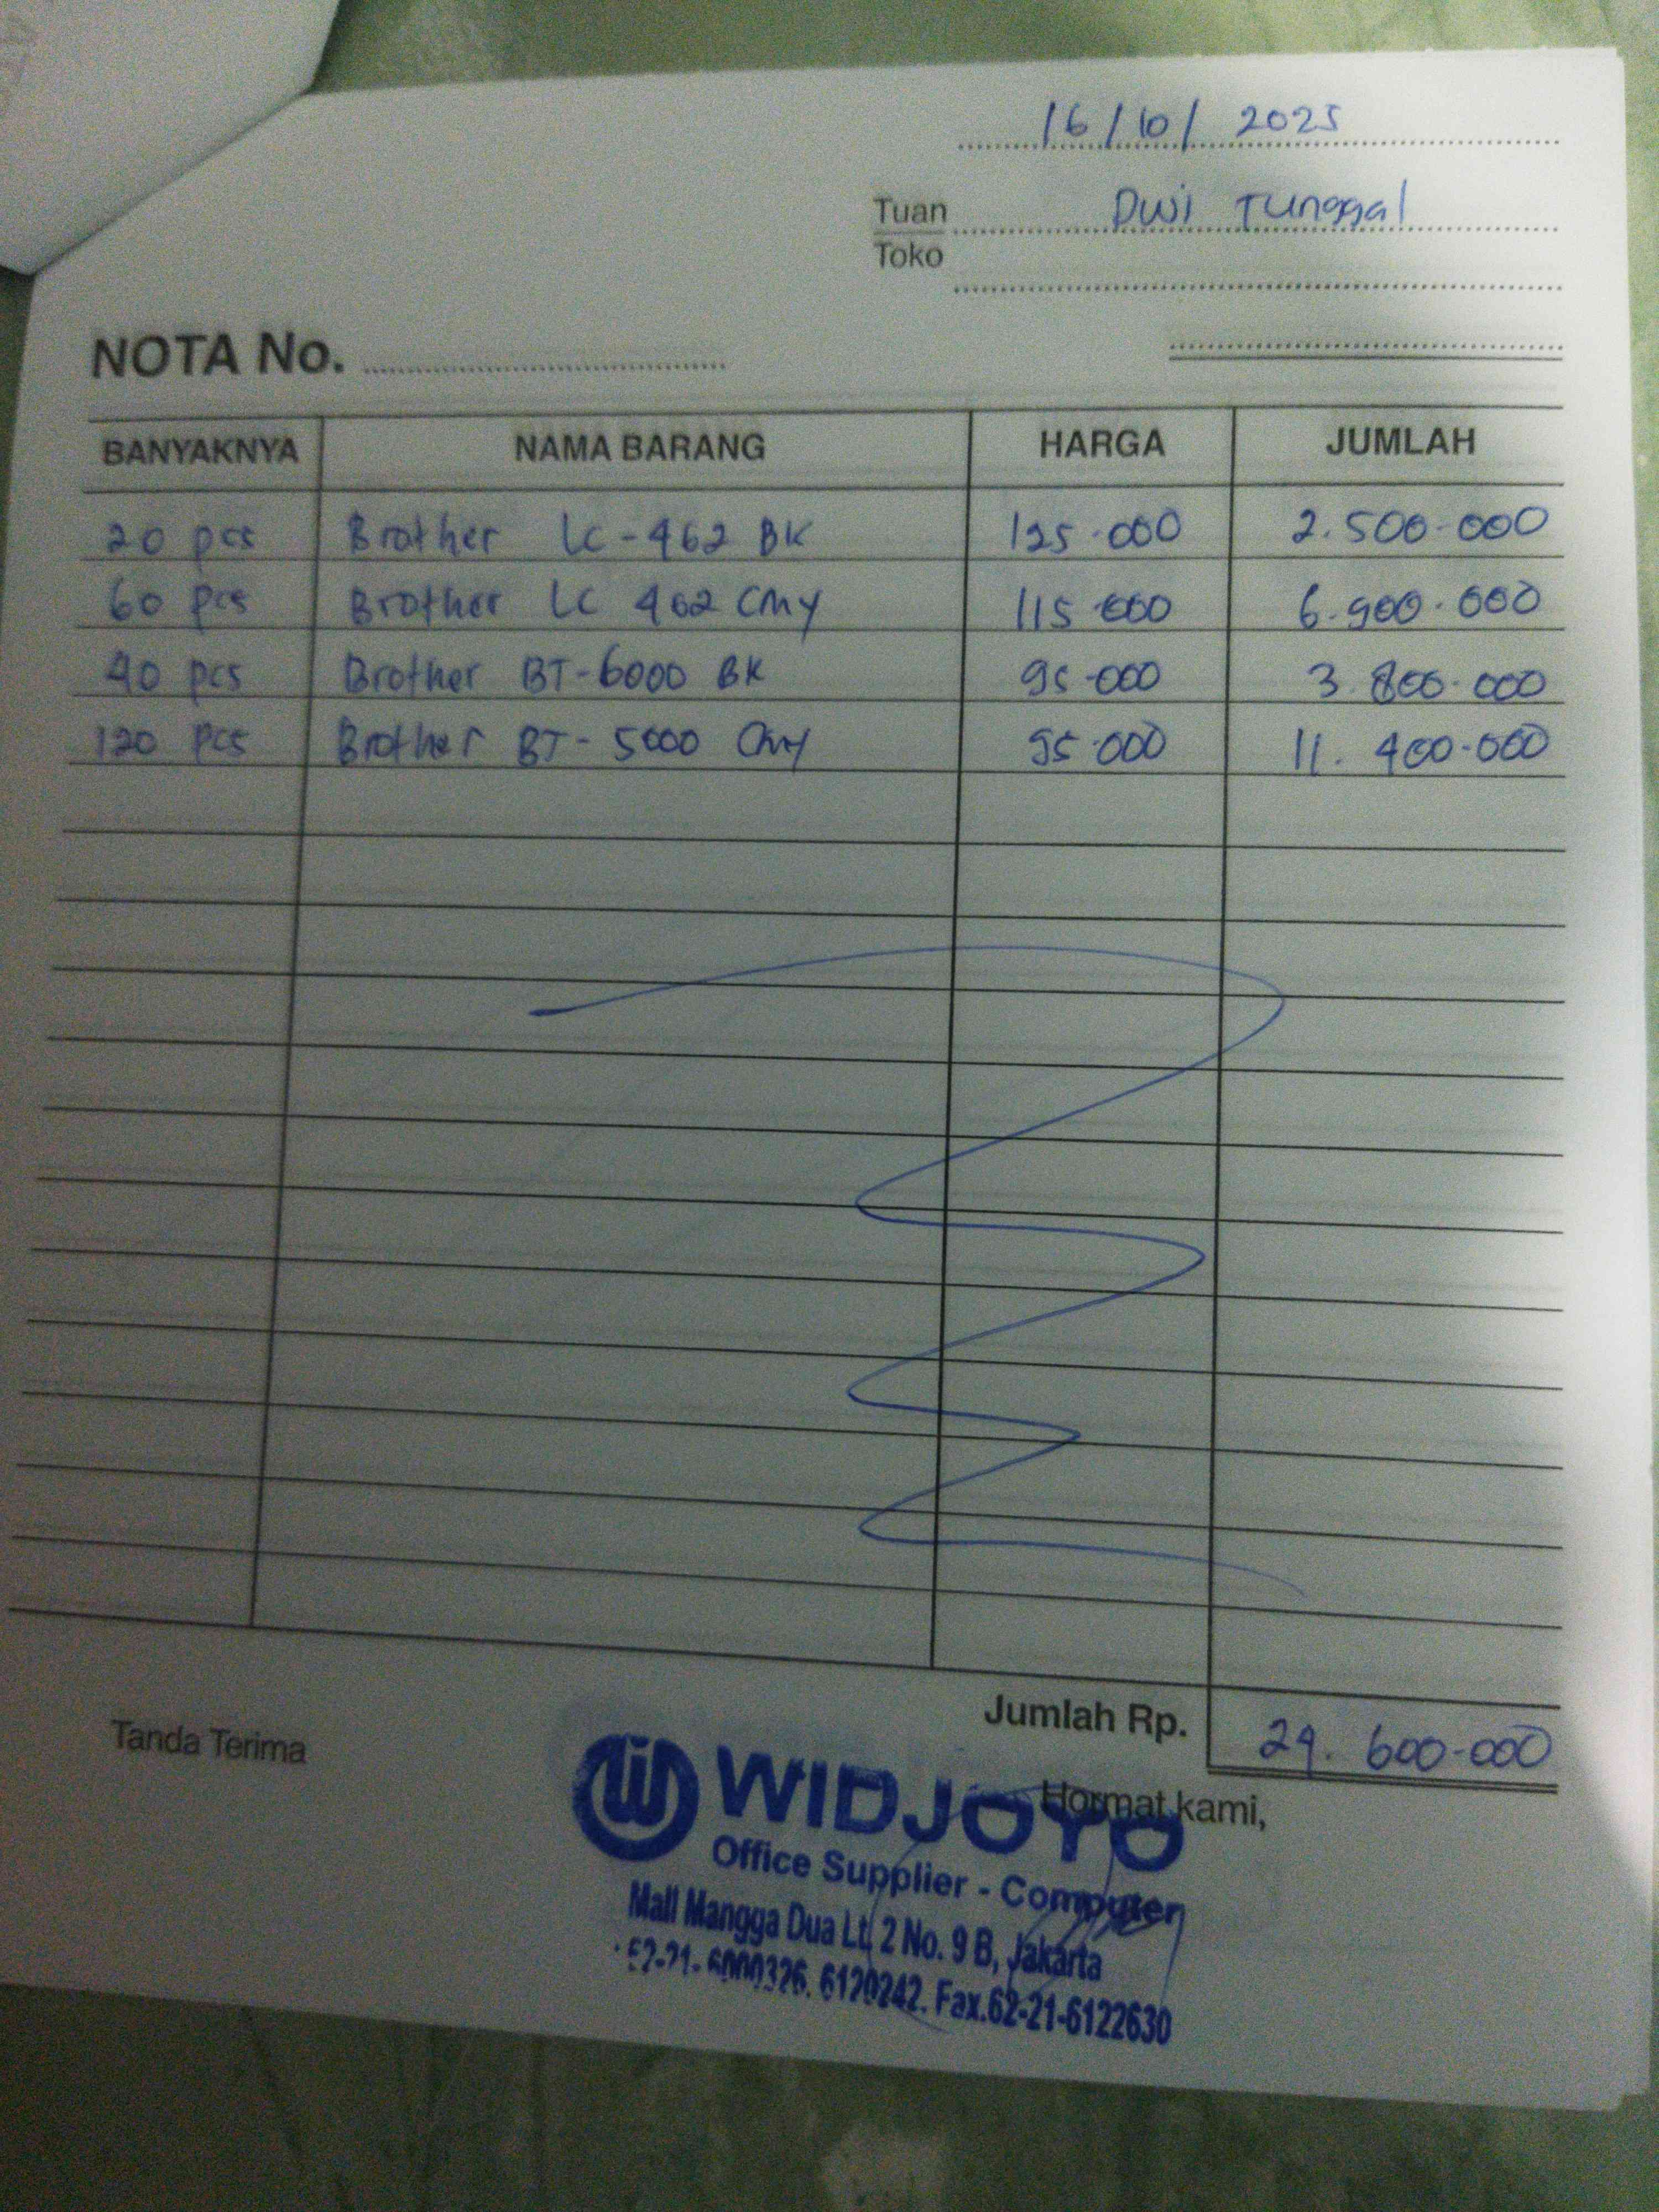 16/10/2025
Tuan Dwi Tunggal
Toko
NOTA No.
BANYAKNYA NAMA BARANG HARGA JUMLAH
20 pcs Brother LC-462 BK 125.000 2.500.000
60 pcs Brother LC 462 CMY 115.000 6.900.000
40 pcs Brother BT-6000 BK 95.000 3.800.000
120 pcs Brother BT-5000 CMY 95.000 11.400.000
Jumlah Rp. 24.600.000
Tanda Terima
Hormat kami,
WIDJOYO
Office Supplier - Computer
Mall Mangga Dua Lt. 2 No. 9 B, Jakarta
62-21-6000326. 6120242. Fax.62-21-6122630